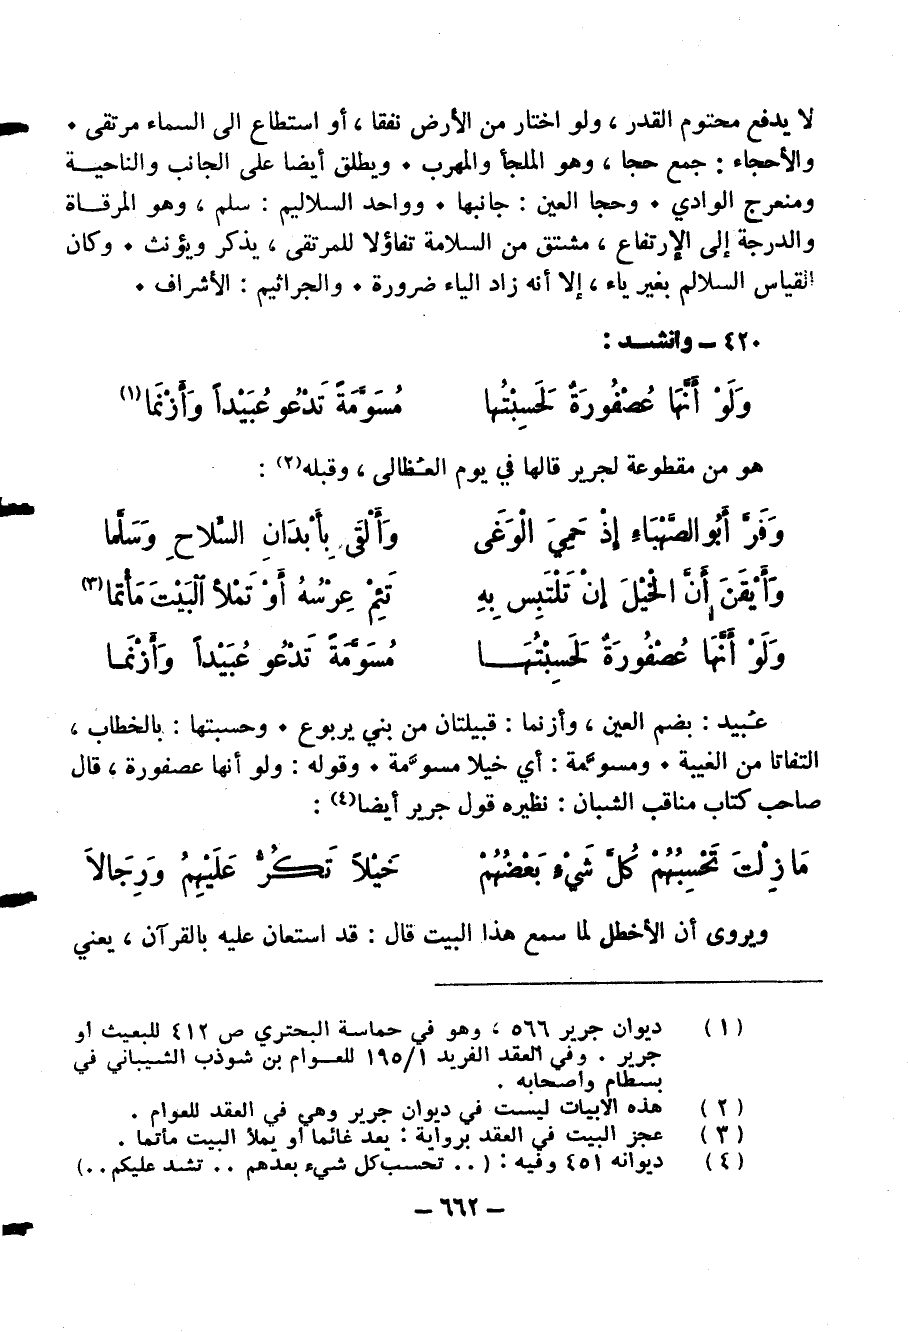 لا يدفع محتوم القدر ، ولو اختار من الأرض نفقا ، أو استطاع الى السماء مرتقى ٠
والأحجاء : جمع حجا ، وهو الملجأ والمهرب ٠ ويطلق أيضا على الجانب والناحيــة
ومنعرج الوادي ٠ وحجا العين : جانبها ٠ وواحد السلاليم : سلم ، وهو المرقــاة
والدرجة إلى الإرتفاع ، مشتق من السلامة تفاؤلا للمرتقى ، يذكر ويؤنث ٠ وكان
القياس السلالم بغير ياء ، إلا أنه زاد الياء ضرورة ٠ والجراثيم : الأشراف ٠
٤٢٠ ــ وانشــد :
وَلَوْ أَنَّهَا عُصْفُورَةٌ لَحَسِبْتُها مُسَوَّمَةً تَدْعُو عُبَيْداً وَأَزْنَما(١)
هو من مقطوعة لجرير قالها في يوم العُظالى ، وقبله(٢) :
وَفَرَّ أَبُو الصَّهْبَاءِ إِذْ حَمِيَ الْوَغَى وَأَلْقَى بِأَبْدَانِ السِّلاحِ وَسَلَّما
وَأَيْقَنَ أَنَّ الْخَيْلَ إِنْ تَلْتَبِس بِهِ تَئِمْ عِرْسُهُ أَوْ تَمْلأ الْبَيْتَ مَأْتما(٣)
وَلَوْ أَنَّهَا عُصْفُورَةٌ لَحَسِبْتُهَــــا مُسَوَّمَةً تَدْعُو عُبَيْداً وَأَزْنَمـا
عُبيد : بضم العين ، وأزنما : قبيلتان من بني يربوع ٠ وحسبتها : بالخطاب ،
التفاتا من الغيبة ٠ ومسوَّمة : أي خيلا مسوَّمة ٠ وقوله : ولو أنها عصفورة ، قال
صاحب كتاب مناقب الشبان : نظيره قول جرير أيضا(٤) :
مَا زِلْتَ تَحْسِبُهُمْ كُلَّ شَيْءٍ بَعْضُهُمْ خَيْلاً تَكُرُّ عَلَيْهِمُ وَرَجَالاَ
ويروى أن الأخطل لما سمع هذا البيت قال : قد استعان عليه بالقرآن ، يعني
(١) ديوان جرير ٥٦٦ ، وهو في حماسة البحتري ص ٤١٢ للبعيث أو
جرير . وفي العقد الفريد ١٩٥/١ للعــوام بن شوذب الشيباني في
بسطام وأصحابه .
(٢) هذه الابيات ليست في ديوان جرير وهي في العقد للعوام .
(٣) عجز البيت في العقد برواية : يعد غائما أو يملأ البيت مأتما .
(٤) ديوانه ٤٥١ وفيه : ( .. تحسب كل شيء بعدهم .. تشد عليكم ..)
ــ ٦٦٢ ــ